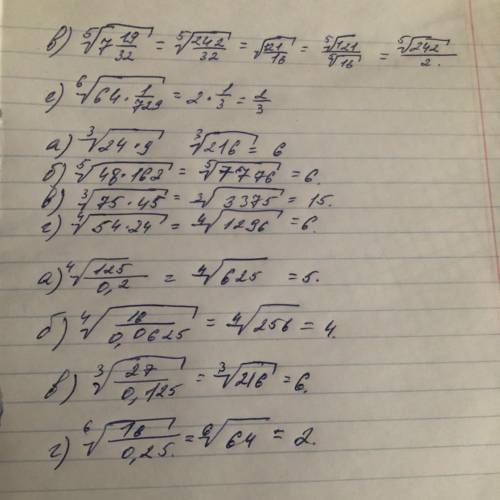 в) ⁵√(7 19/32) = ⁵√(242/32) = √(121/16) = ⁵√121/⁵√16 = ⁵√242/2.
г) ⁶√(64·1/729) = 2·1/3 = 2/3
а) ³√(24·9) ³√216 = 6
б) ⁵√(48·162) = ⁵√7776 = 6.
в) ³√(75·45) = ³√3375 = 15.
г) ⁴√(54·24) = ⁴√1296 = 6.
а) ⁴√(125/0,2) = ⁴√625 = 5.
б) ⁴√(16/0,0625) = ⁴√256 = 4.
в) ³√(27/0,125) = ³√216 = 6.
г) ⁶√(16/0,25.) = ⁶√64 = 2.